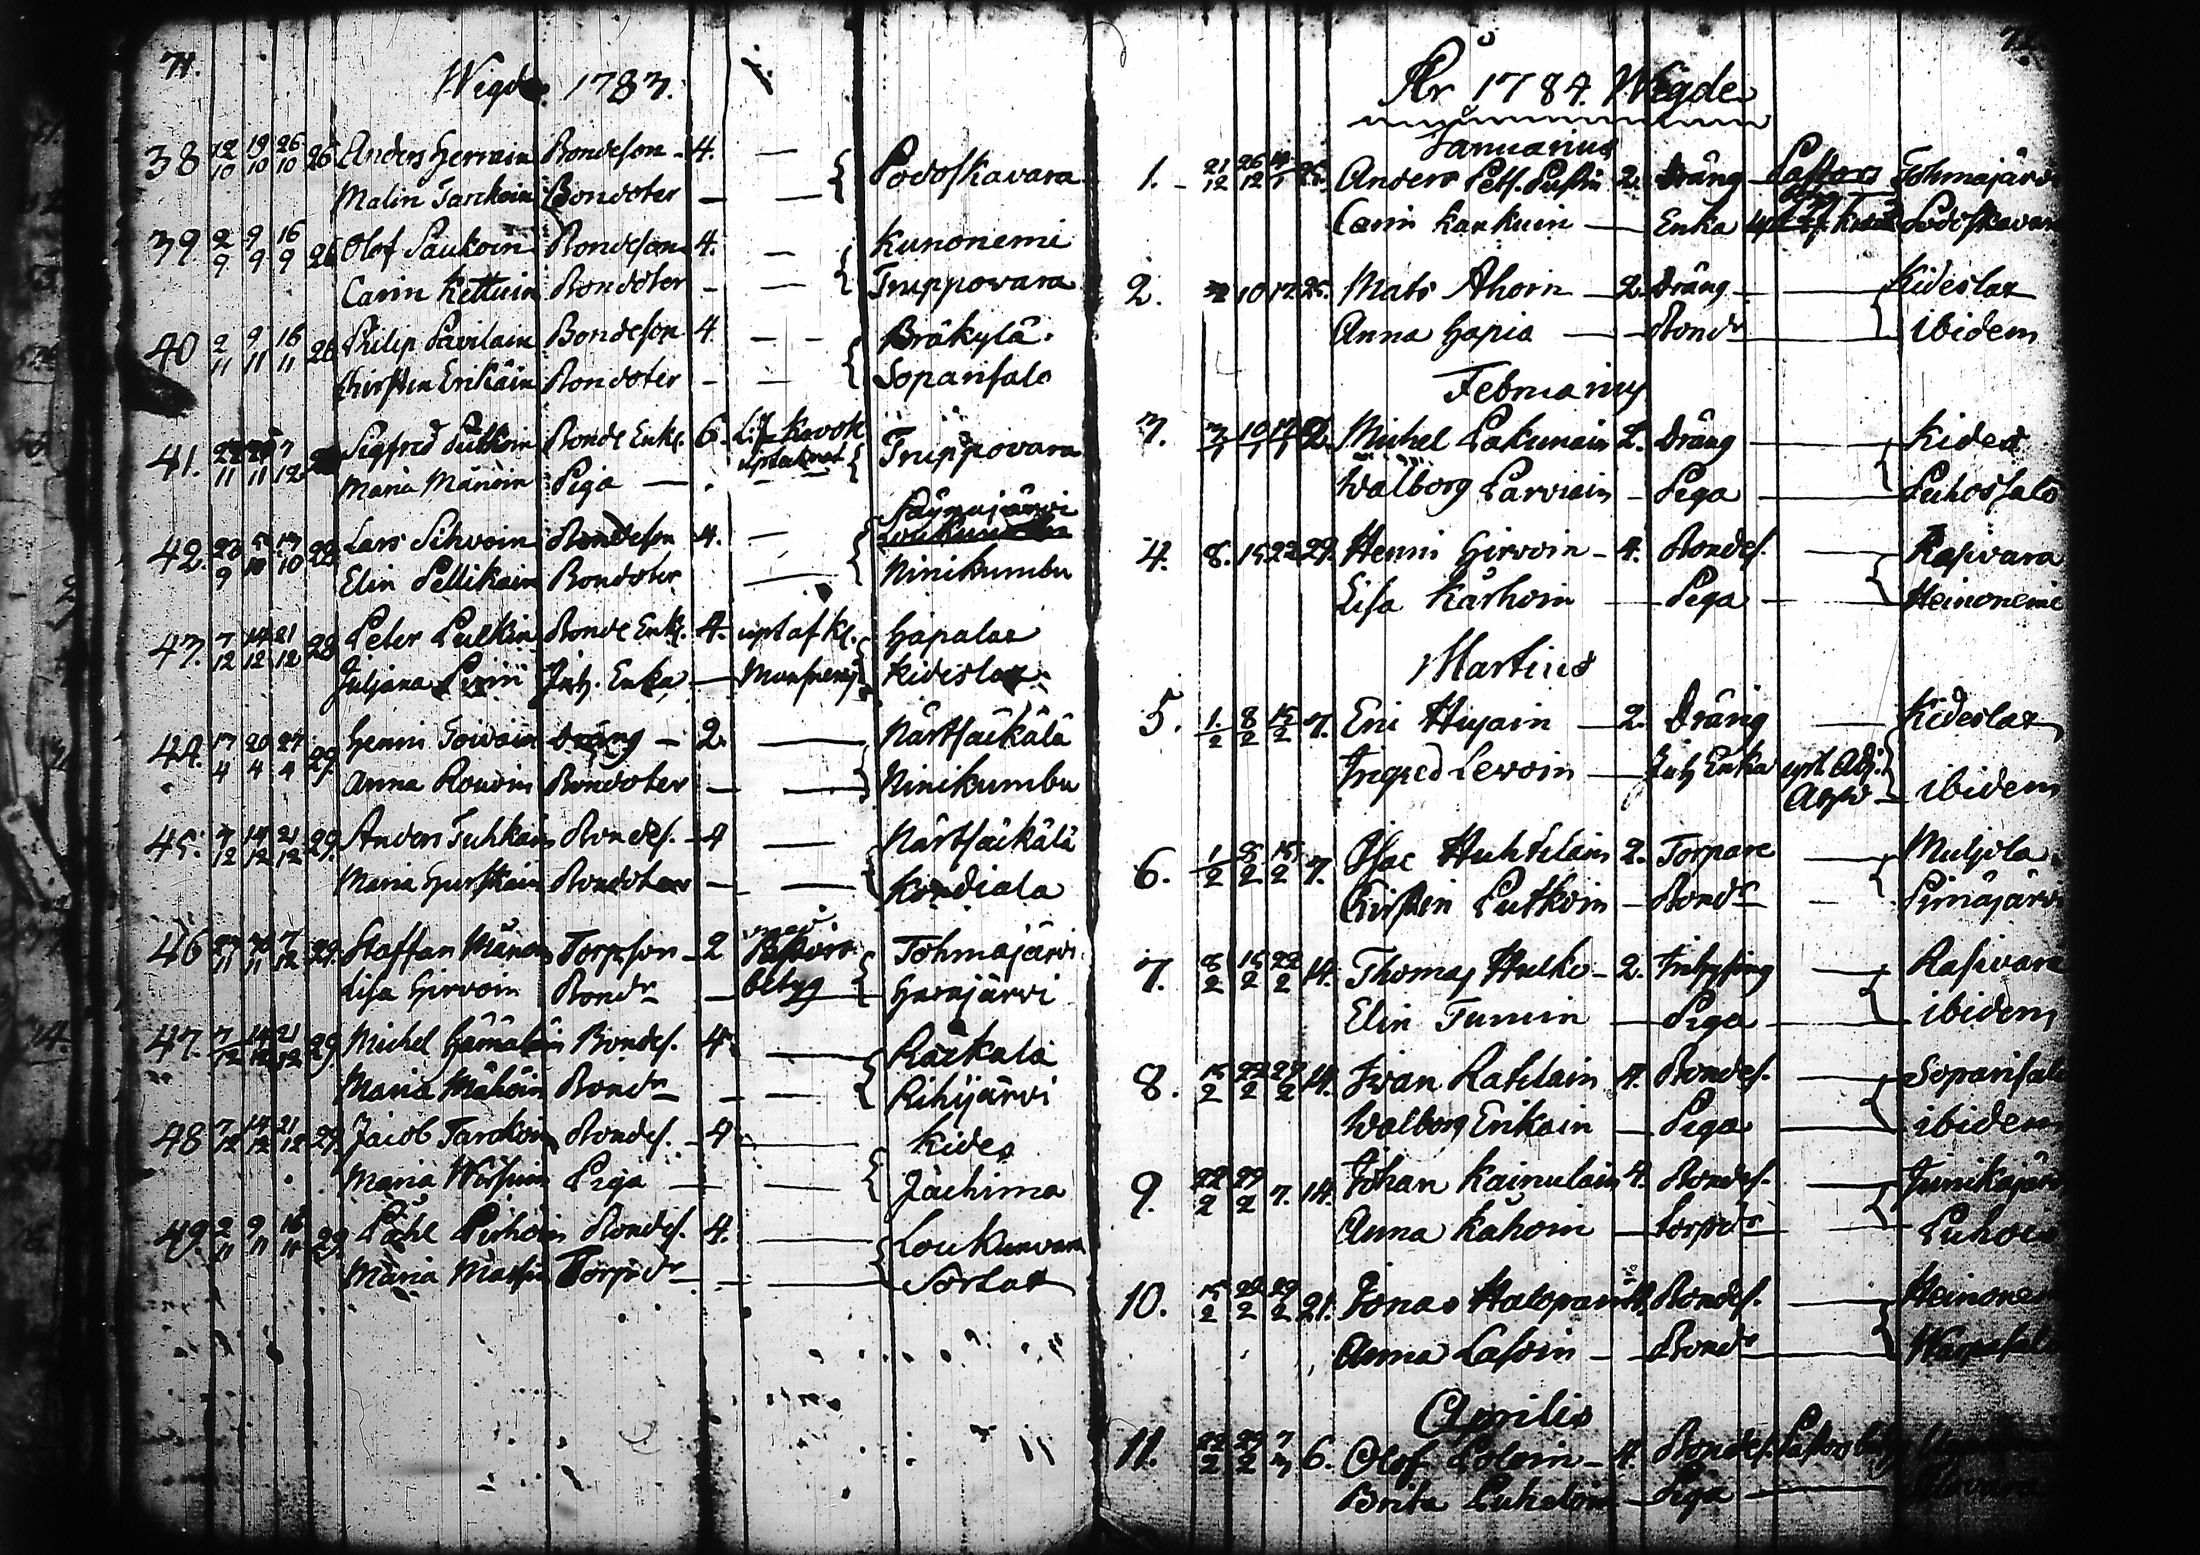 71.
Wigde 1783.
38 12/10 19/10 26/10 26 Anders Hervain Bondeson - 4. — Podoskavara
Malin Tarckain Bondoter - —
39. 2/9 9/9 16/9 26 Olof Saukoin Bondeson 4. — Kunonemi
Carin Kettuin Bondoter - — Truppovara
40 2/11 9/11 16/11 26 Philip Pavilain Bondeson 4 - - Bräkylä.
Kirstin Erikäin Bondoter - — Sopansalo
41. 11 11 7/12 Sigfred Putkoin Bonde Enkl. 6. Truppovara
Maria Mänöin Piga —
Säynäjärvi
42. 9 10 10 28 Lars Sihvoin Bondeson 4. —
Elin Pellikain Bondoter — Ninikumbu
43. 7/12 14/12 21/12 28 Peter Pulkin Bonde Enkl. 4. upt af kl. Hapalax
Juljana Inh. Enka — Kideslax
44. 13/4 20/4 27/4 29. Henric Toivain dräng - 2. — Närtsäikälä
Anna Rouvin Bondoter - — Ninikumbu
45. 7/12 14/12 21/12 29. Anders Tuhkain Bondes. - 4 — Närtsäikälä
Maria Hurskain Bondoter - — Kondiala
46 11 11 7/12 29. Staffan Mänöin Torpson - 2 med Pastors Tohmajärvi
Lisa Hirvoin Bondr — betyg Havajärvi
47. 7/12 14/12 21/12 29. Michel Hämäläin Bondes. 4. — Räckälä
Maria Mähöin Bondr - — Rihijärvi
48 7/12 14/12 21/12 29. Jacob Tarckain Bondes. - 4 — Kides
Maria Wäisain Piga — Jächima
49. 2/11 9/11 16/11 29. Påhl Pirhoin Bondes. 4. — Loukunvara
Maria Torpdr - — Sorlax
Åhr 1784. Wigde
Januarius
1. - 21/12 26/12 Anders Pets. 2. Dräng Pastors Tohmajärvi
Carin Karkuin — Enka
2. 10 17. 25. Mats Ahoin — 2. Dräng — Kideslax
Anna Hapia — Bondr — ibidem
Februarius
3. 3/1 10/1 17/1 2. Michel Lakunain 2. Dräng — Kides
Walborg Parviain — Piga — Puhossalo
4. 8. 15 22 29. Henric Hirvoin - 4. Bondes. — Rasivara
Lisa Kärhoin — Piga — Heinonemi
Martius
5. 1/2 8/2 15/2 7. Eric Hujain — 2. Dräng — Kideslax
Ingred Levoin — Inh Enka ibidem
6. 1/2 8/2 15/2 7. Isac Huhtilain 2. Torpare — Muljola
Kirstin Putkoin — Bondr — Pimäjärvi
7. 8/2 15/2 22/2 14. Thomas Hulko - 2. Inhysing — Rasivara
Elin Turuin — Piga — ibidem
8. 15/2 22/2 29/2 14. Iwan Ratilain 4. Bondes. — Sopansalo
Walborg Erikain — Piga — ibidem
9. 22/2 29/2 7. 14. Johan Kainulain 4. Bondes. —
Anna Kähoin — Torpdr — Puhois
10. 15/2 22/2 29/2 21. Jonas Halopain 4. Bondes. — Heinonemi
Anna Lasoin — Bondr —
Aprilis
11. 22/2 29/2 7/3 6. Olof - 4. Bondes. Pastors betyg
Brita Puhaloin — Piga —